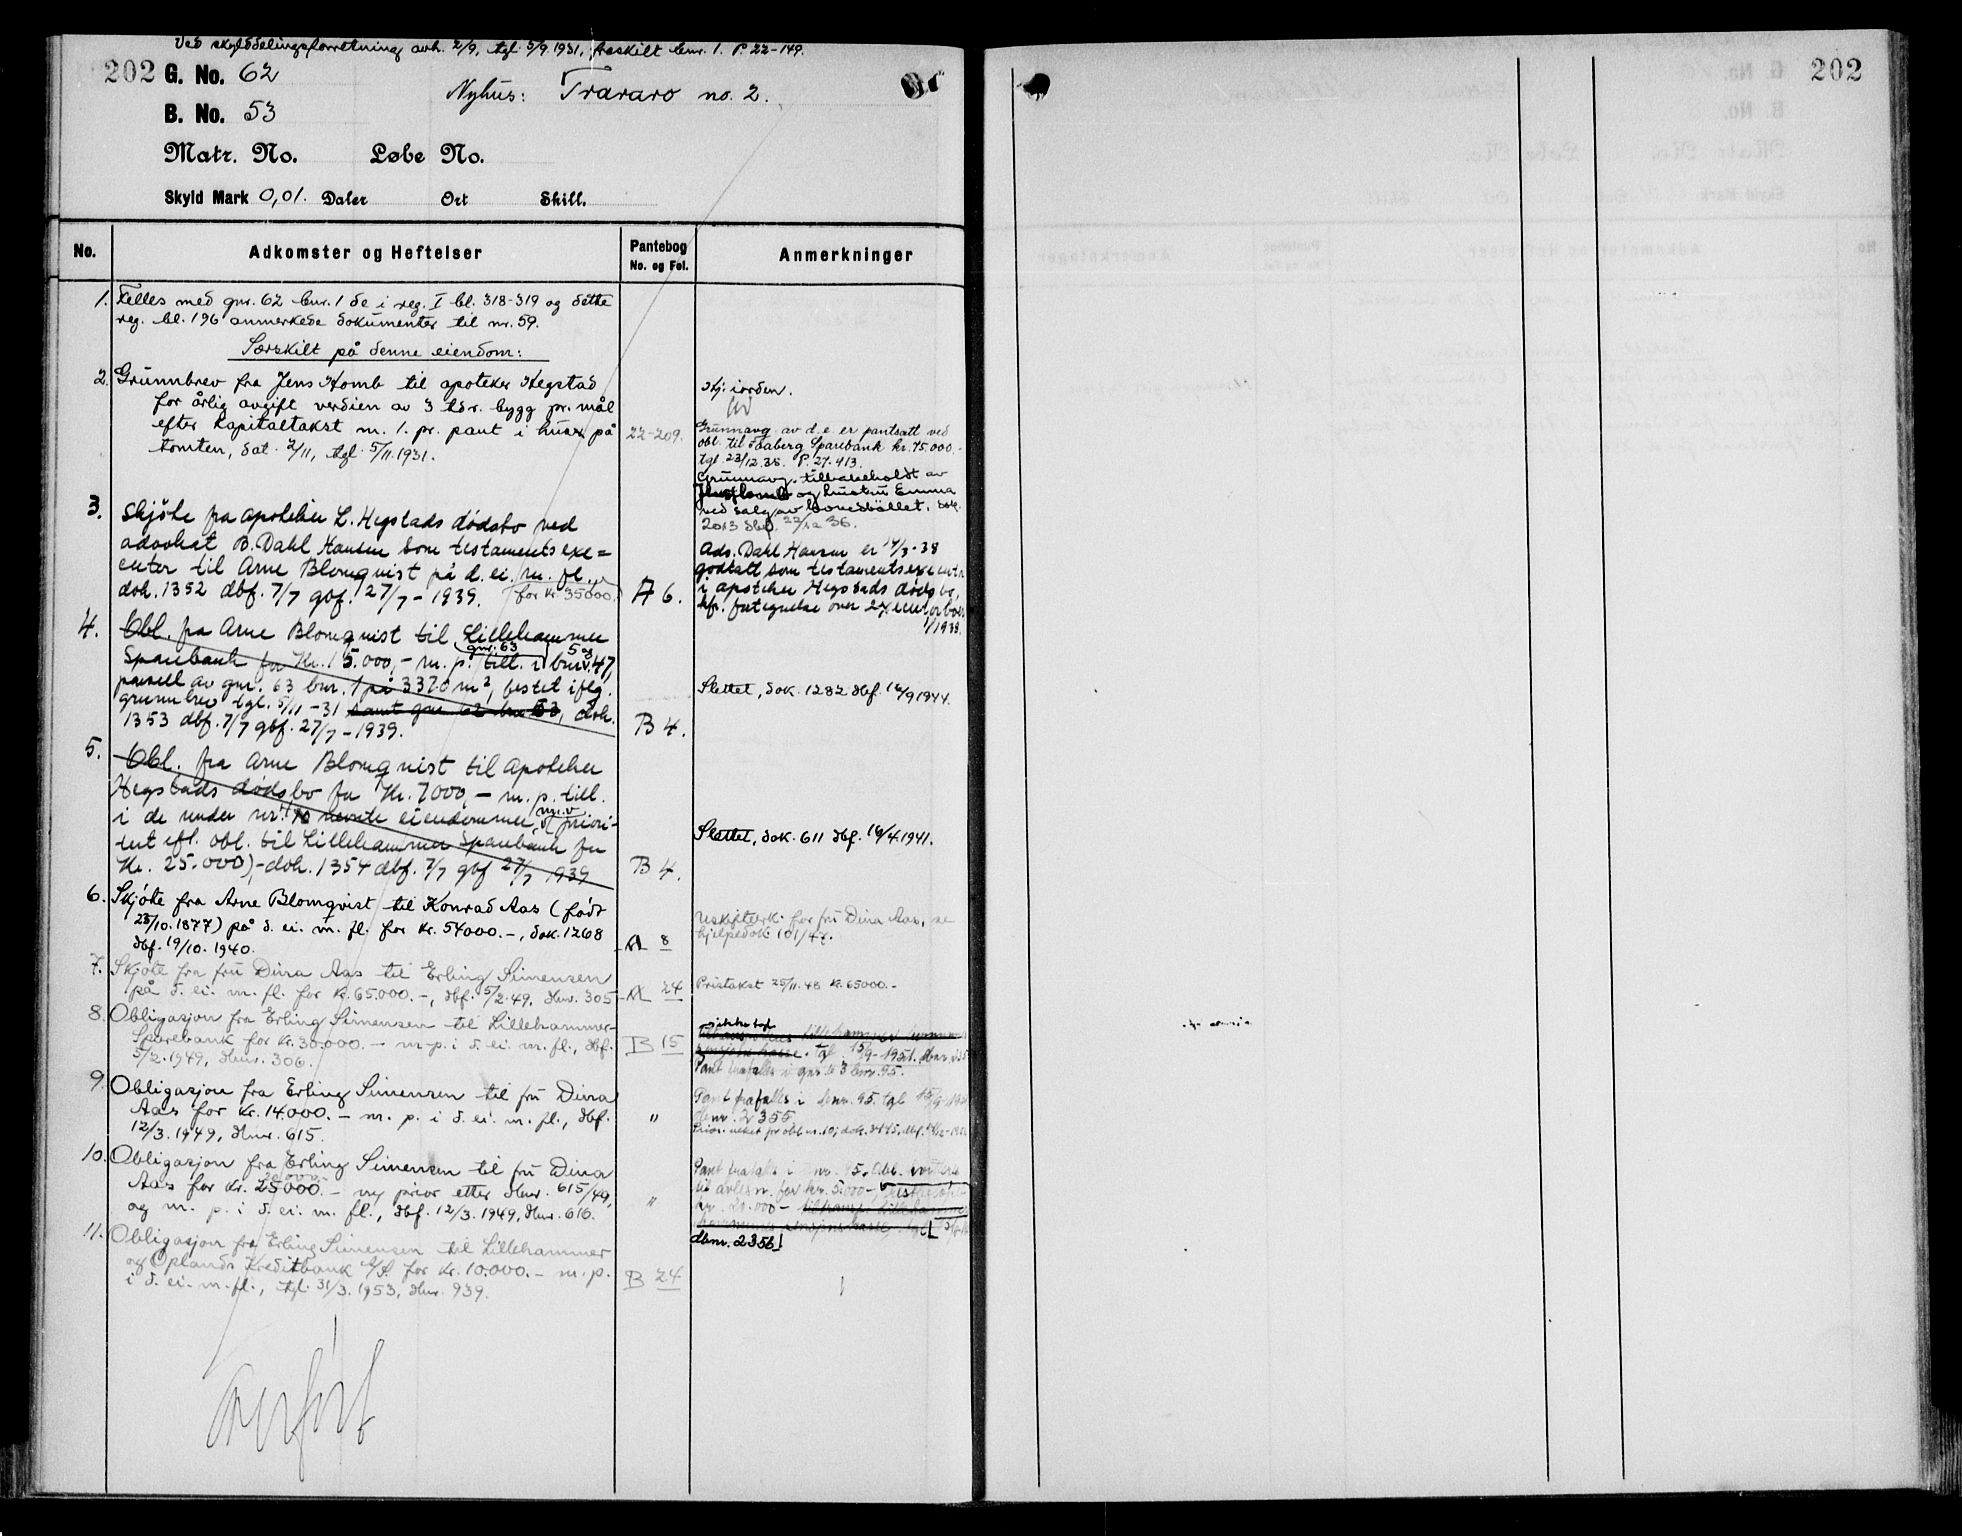 Ved skylddelingsforretning avh. 2/9, tgl. 5/9.1931, fraskilt bnr. 1. P. 22-149.
202 G. No. 62
Nyhus: Traaro no. 2.
B. No. 53
Matr. No. Løbe No.
Skyld Mark 0,01. Daler Ort Skill.
No. Adkomster og Heftelser Pantebog No. og Fol. Anmerkninger
1. Felles med gnr. 62 bnr. 1 de i reg. I bl. 318-319 og dette
reg. bl. 196 anmerkede dokumenter til nr. 59.
Særskilt på denne eiendom:
2. Grunnbrev fra Jens Homb til apoteker Hegstad
for årlig avgift verdien av 3 tdr. bygg pr. mål
efter kapitaltakst m. 1. pr. pant i huse på 22-209.
tomten, dat. 2/11, tgl. 5/11.1931.
Hj: iorden.
Grunnavg. av d. e. er pantsatt ved
obl. til Faaberg Sparebank kr. 75.000.-
tgl. 23/12.36. P. 27.413.
Grunnavg. tilbakeholdt av
Jens Homb og hustru Emma
ved salg av hovedbøllet. dok.
2013 dbf. 22/12 36.
3. Skjøte fra apoteker L. Hegstads dødsbo ved
advokat B. Dahl Hansen som testamentsexe=
cutor til Arne Blomqvist på d. ei. m. fl.
dok. 1352 dbf. 7/7 gbf. 27/7 - 1939. for kr. 35000. A 6.
Adv. Dahl Hansen er 14/3-38
godtatt som testamentsexecutor
i apoteker Hegstads dødsbo,
1/1938.
4. Obl. fra Arne Blomqvist til Lillehammer
gnr. 63 5 og
Sparebank for Kr. 15.000,- m. p. till. i bnr. 47,
parsell av gnr. 63 bnr. 1 på 3370 m², festet iflg.
grunnbrev tgl. 5/11-31 samt gnr. 62 bnr. 53, dok.
1353 dbf. 7/7 gbf. 27/7 - 1939. B 4.
Slettet, dok. 1282 dbf. 16/9 1944.
5. Obl. fra Arne Blomqvist til Apoteker
Hegstads dødsbo for Kr. 7000,- m. p. till.
i de under nr. 4 nevnte eiendommer, m. v. (priori-
tet efl. obl. til Lillehammer Sparebank for
Kr. 25.000),- dok. 1354 dbf. 7/7 gbf 27/7 1939 B 4.
Slettet, dok. 611 dbf. 16/4.1941.
6. Skjøte fra Arne Blomqvist til Konrad Aas (født
25/10.1877) på d. ei. m. fl. for kr. 54000.-, dok. 1268
dbf. 19/10. 1940. A 8
Uskifteerk. for fru Dina Aas, se
hjelpedok. 101/47.
7. Skjøte fra fru Dina Aas til Erling Simensen
på d. ei. m. fl. for kr. 65.000.-, dbf. 5/2.49, dnr. 305 A 24
Pristakst 25/11.48 kr. 65000.-
8. Obligasjon fra Erling Simensen til Lillehammer
Sparebank for kr. 30.000.- m. p. i d. ei. m. fl., dbf.
5/2.1949, dnr. 306. B 15
pensjonskasse. tgl. 15/9-1951.
Pant frafalles i gnr. 63 bnr. 95.
9. Obligasjon fra Erling Simensen til fru Dina
Aas for kr. 14.000.- m. p. i d. ei. m. fl., dbf. "
12/3.1949, dnr. 615.
Pant frafalles i bnr. 95. tgl.
dbnr. 2355
10. Obligasjon fra Erling Simensen til fru Dina
Aas for kr. 25000.- ny prior. etter dnr. 615/49,
og m. p. i d. ei. m. fl., dbf. 12/3.1949, dnr. 616. "
til avlesn. for kr. 5.000-,
dbnr. 2356
11. Obligasjon fra Erling Simensen til Lillehammer
og Oplands Kreditbank A/S. for kr. 10.000.- m. p.
i d. ei. m. fl., tgl. 31/3.1953, dnr. 939. B 24
Overført
202